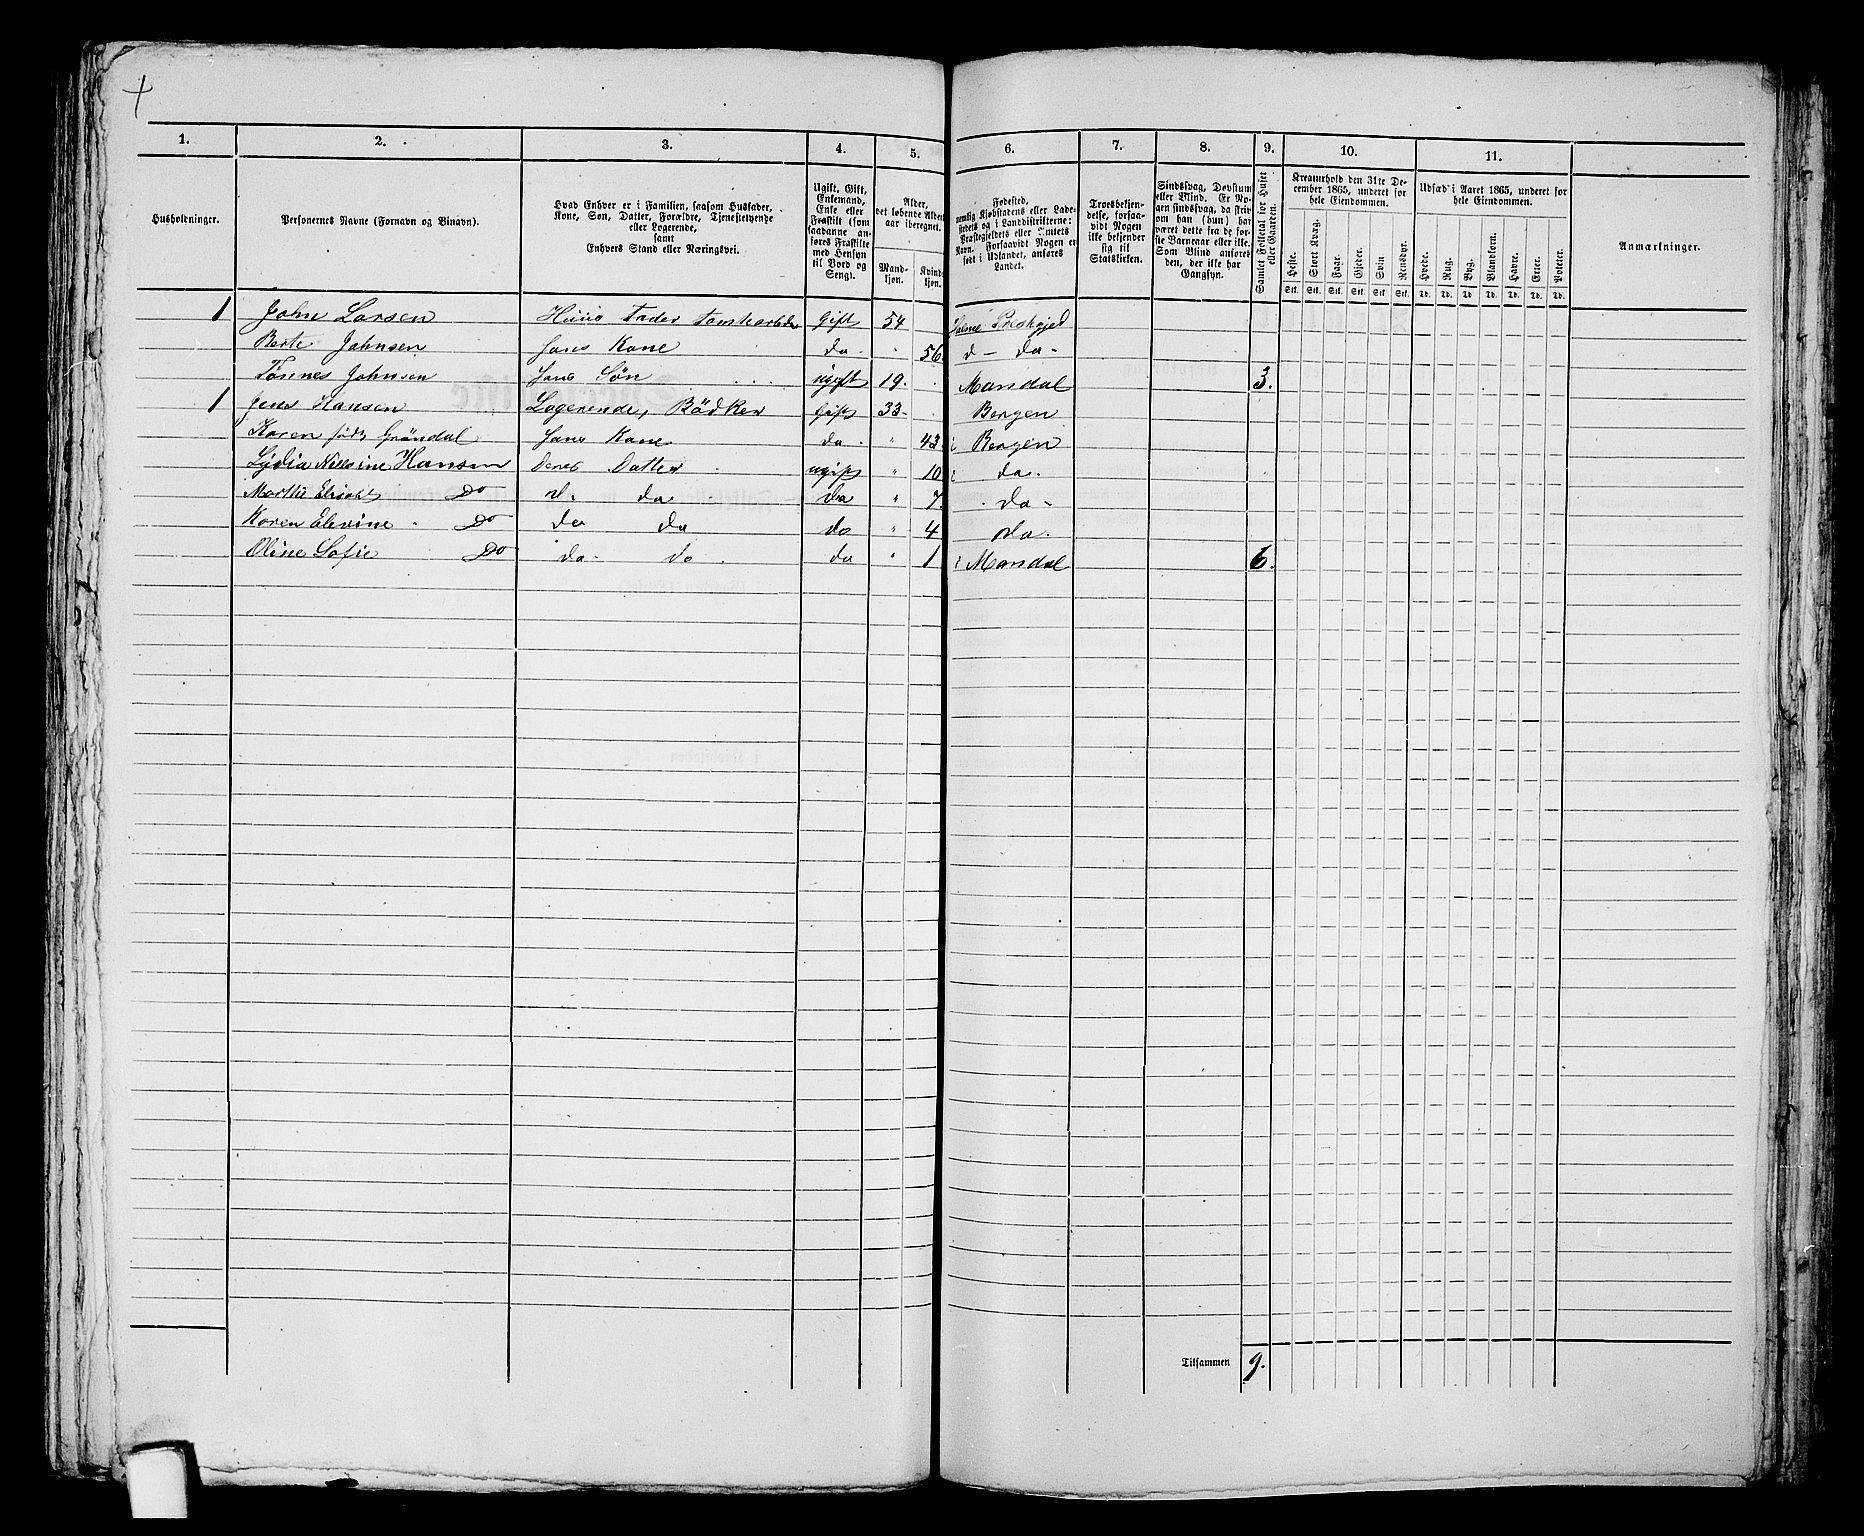 1. 2. 3. 4. 5. 6. 7. 8. 9. 10. 11.
Husholdninger.
Personernes Navne (Fornavn og Binavn).
Hvad Enhver er i Familien, saasom Husfader,
Kone, Søn, Datter, Forældre, Tjenestetyende
eller Logerende,
samt
Enhvers Stand eller Næringsvei.
Ugift, Gift,
Enkemand,
Enke eller
Fraskilt (som
saadanne an-
føres Fraskilte
med Hensyn
til Bord og
Seng).
Alder,
det løbende Alders-
aar iberegnet.
Mand-
kjøn.
Kvinde-
kjøn.
Fødested,
nemlig Kjøbstadens eller Lade-
stedets og i Landdistrikterne:
Præstegjeldets eller Amtets
Navn. Forsaavidt Nogen er
født i Udlandet, anføres
Landet.
Troesbekjen-
delse, forsaa-
vidt Nogen
ikke bekjender
sig til
Statskirken.
Sindssvag, Døvstum
eller Blind. Er No-
gen sindssvag, da skri-
ves om han (hun) har
været dette fra de før-
ste Barneaar eller ikke.
Som Blind anføres
den, der ikke har
Gangsyn.
Samlet Folketal for Huset
eller Gaarden.
Kreaturhold den 31te De-
cember 1865, underet for
hele Eiendommen.
Heste. Stort Kvæg. Faar. Gjeder. Svin Rensdyr.
Stk. Stk. Stk. Stk. Stk. Stk.
Udsæd i Aaret 1865, underet for
hele Eiendommen.
Hvede. Rug. Byg. Blandkorn. Havre. Erter. Poteter.
Td. Td. Td. Td. Td. Td. Td.
Anmærkninger.
1 John Larsen Huus Fader gift 54
Berte Johnsen Hans Kone do. " 56 d- do-
Tønnes Johnsen Hans Søn ugift 19. Mandal 3.
1 Jens Hansen Logerende, Bödker gift 33 Bergen
Karen født Gröndal Hans Kone do. " 42 i Bergen
Lydia Nielsine Hansen Deres Datter ugift " 10 i do.
Do d. do do " 7. do-
Karen Elevine Do do do do " 4 do.
Oline Sofie Do do. do do " 1 i Mandal 6.
Tilsammen 9.